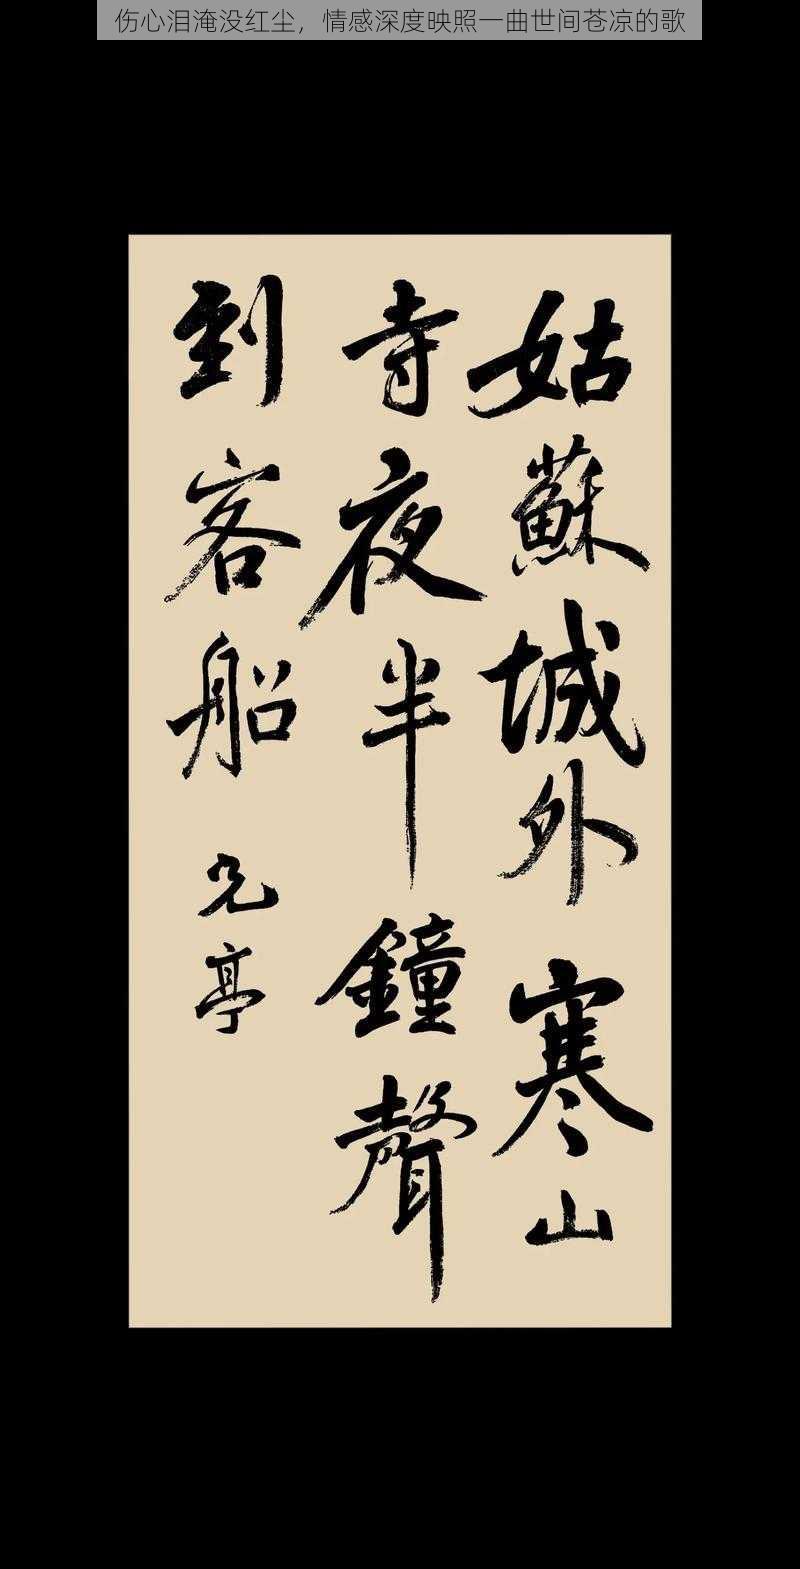 伤心泪淹没红尘，情感深度映照一曲世间苍凉的歌
姑蘇城外寒山
寺夜半鐘聲
到客船
元亭